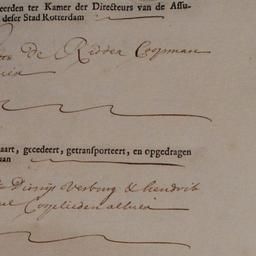 eerden ter Kamer der Directeurs van de Assu-
deser Stad Rotterdam
De Ridder Coopman
aart, gecedeert, getransporteert, en opgedragen
aan
Dionijs Verburg & hendrik
Cooplieden alhier